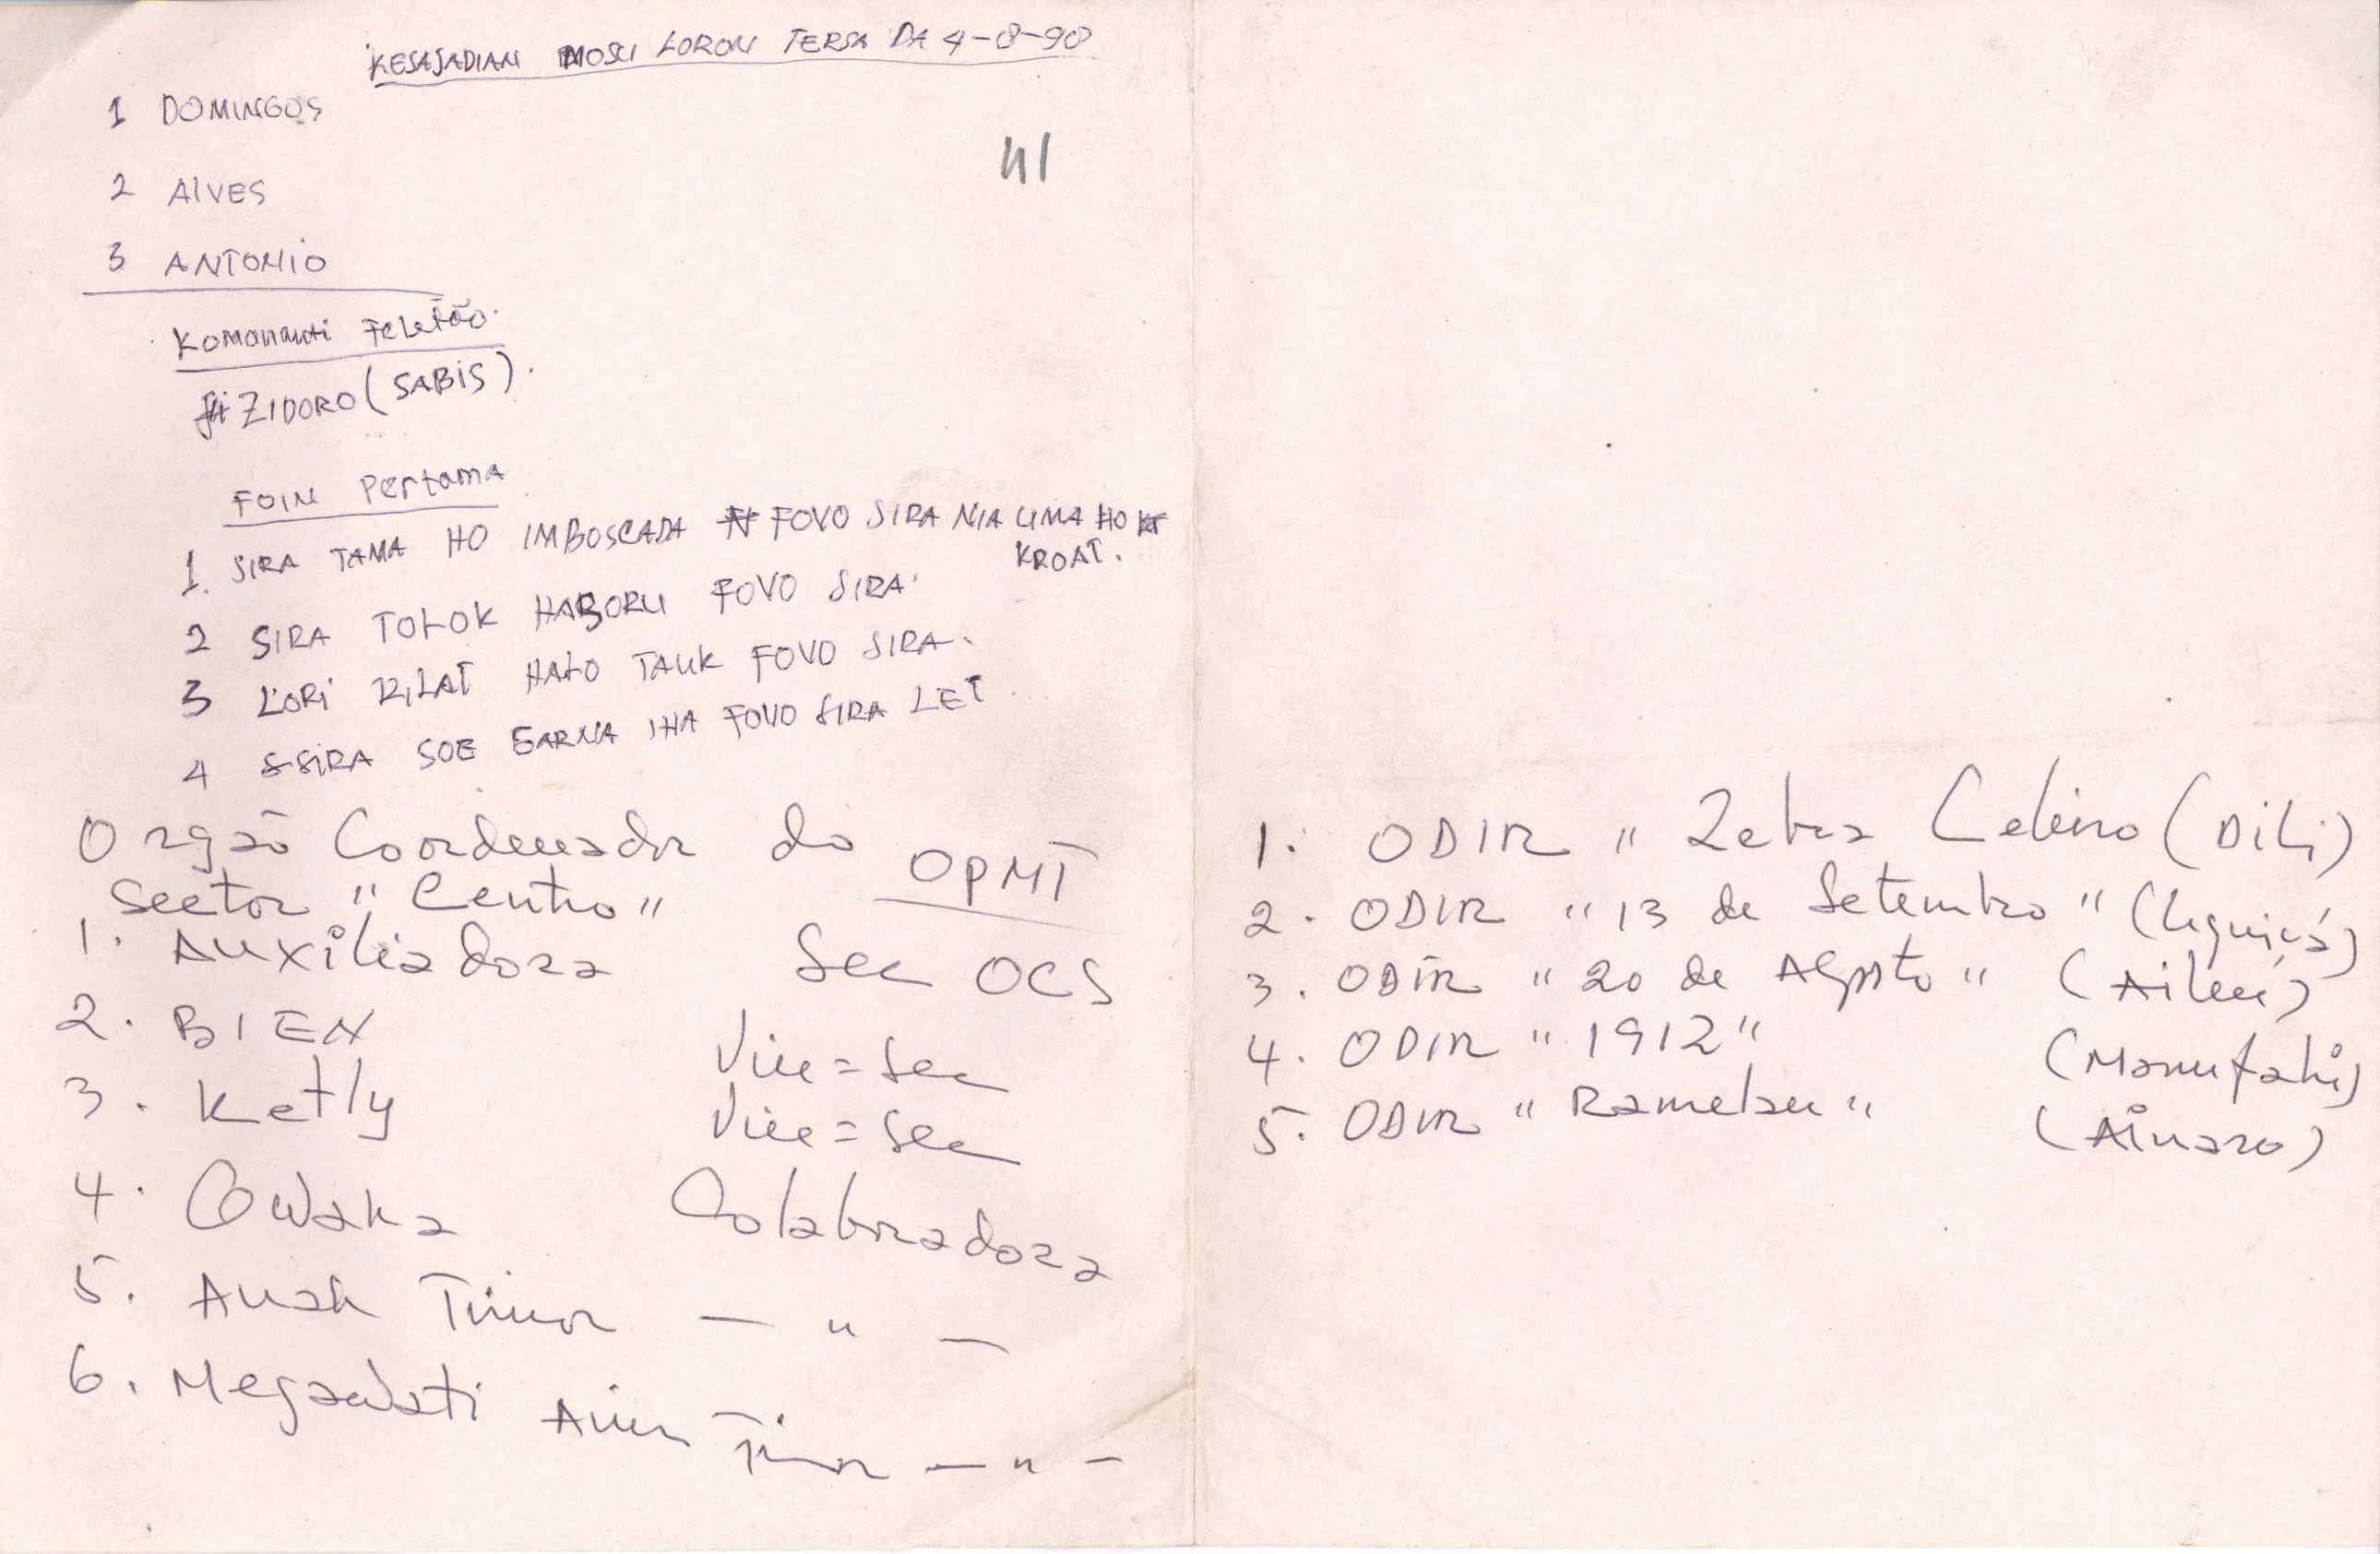 KESAJADIAN MOSU LORON TERSA DA 4-8-90
1 DOMINGOS
41
2 AlVES
3 ANTONIO
Komananti Feletão.
ZIDORO (SABIS).
FOIN Pertama
1. SIRA TAMA HO IMBOSCADA FOVO SIRA NIA UMA HO
KROAT.
2 SIRA TOLOK HABORU FOVO SIRA.
3 LORI KILAT HALO TAUK FOVO SIRA.
4 SIRA SOE GARNA IHA FOVO SIRA LET
Orgaõ Coordenador do OPMT
Sector "Centro"
1. Auxiliadora Sec OCS
2. BIEN Vice=Sec
3. Ketly Vice=Sec
4. Colaboradora
5. Anak Timor — " —
6. Megawati Timor — " —
1. ODIR " Celeiro (Dili)
2. ODIR "13 de Setembro" (Liquiçá)
3. ODIR "20 de Agosto" (Aileu)
4. ODIR "1912" (Manufahi)
5. ODIR "Ramelau" (Ainaro)